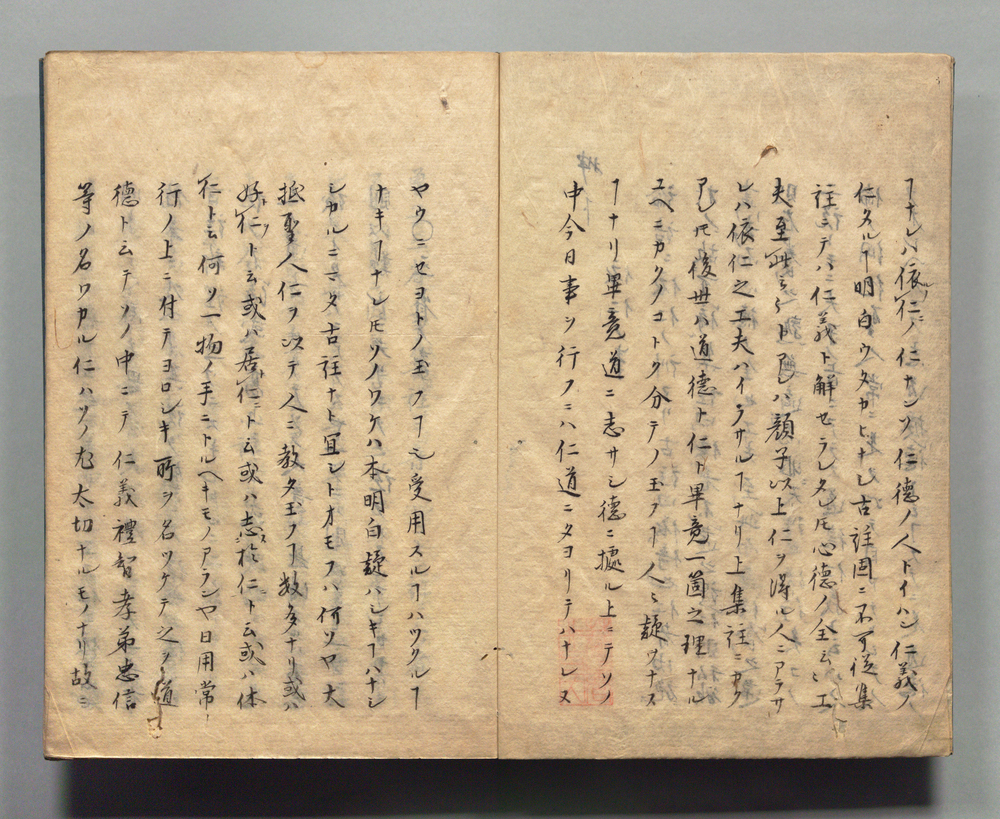 ヿナレハ依仁ノ仁ナンソ仁徳ノ人トイハン仁義ノ
仁タルヿ明白ウタカヒナシ古註固ニ不可従集
註ニテハ仁義ト解セラレタレ𪜈心徳ノ全云云工
夫至此云云トアレハ顔子以上仁ヲ得ル人ニアラサ
レハ依仁之工夫ハイラサルヿナリ上集註ニカク
アレ𪜈後世ハ道徳ト仁ト畢竟一箇之理ナル
ユヘニカクノコトク分テノ玉フヿ人々疑ヲナス
ヿナリ畢竟道ニ志サシ徳ニ據ル上ニテソノ
中今日事ヲ行フニハ仁道ニタヨリテハナレス
ヤウニセヨトノ玉フヿ也受用スルヿハツクルヿ
ナキヿナレ𪜈ソノワケハ本明白疑ハシキヿハナシ
シカルニマタ古註ナト宜シトオモフハ何ソヤ大
抵聖人仁ヲ以テ人ニ教タ玉ヲヿ数多ナリ或ハ
好仁ト云或ハ居仁ト云或ハ志於仁ト云或ハ体
仁ト云何ソ一物ノ手ニトルヘキモノアランヤ日用常
行ノ上ニ付テヨロシキ所ヲ名ツケテ之ヲ道
徳ト云テソノ中ニテ仁義禮智孝弟忠信
等ノ名ワカル仁ハソノ尤大切ナルモノナリ故ニ